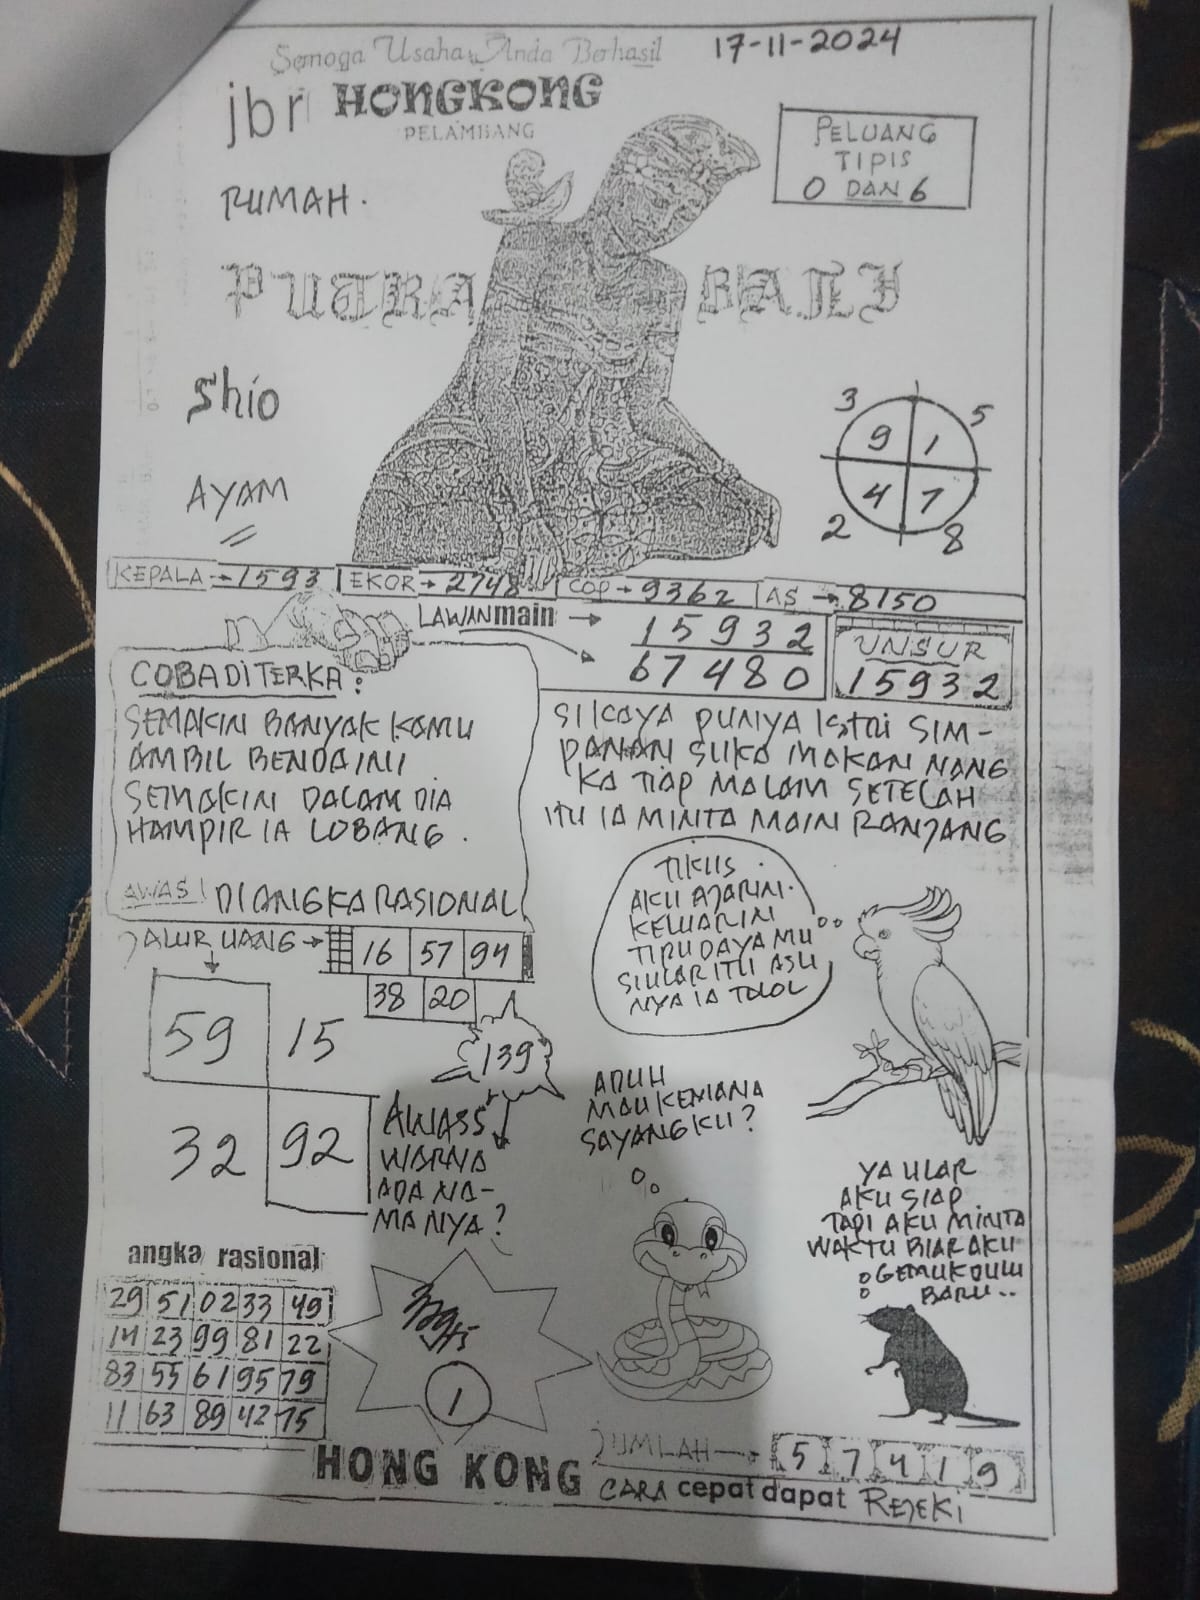 Semoga Usaha Anda Berhasil
17-11-2024
jbr HONGKONG
PELAMBANG
PELUANG
TIPIS
0 DAN 6
RUMAH.
PUTRA BALI
Shio
AYAM
3 5
9 1
4 7
2 8
KEPALA → 1593 EKOR → 2748 COP → 9362 AS → 8150
LAWAN main →
15932
67480
UNSUR
15932
COBA DITERKA :
SEMAKIN BANYAK KAMU
AMBIL BENDA INI
SEMAKIN DALAM DIA
HAMPIR IA LOBANG.
AWAS! DI ANGKA RASIONAL
SI KAYA PUNYA ISTRI SIM-
PANAN SUKA MAKAN NANG
KA TIAP MALAM SETELAH
ITU IA MINTA MAIN RANJANG
JALUR UANG → 16 57 94
38 20
59 15
32 92
139
AWASS
WARNA
ADA NA-
MANYA?
TIKUS.
AKU AJARIN.
KELUARIN
TIPU DAYA MU
SI ULAR ITU ASLI
NYA IA TOLOL
ADUH
MAU KEMANA
SAYANGKU?
YA ULAR
AKU SIAP
TAPI AKU MINTA
WAKTU BIAR AKU
GEMUK DULU
BARU..
angka rasional
29 51 02 33 49
14 23 99 81 22
83 55 61 95 79
11 63 89 42 75
1
JUMLAH → 5 7 4 1 9
HONG KONG
CARA cepat dapat REJEKI